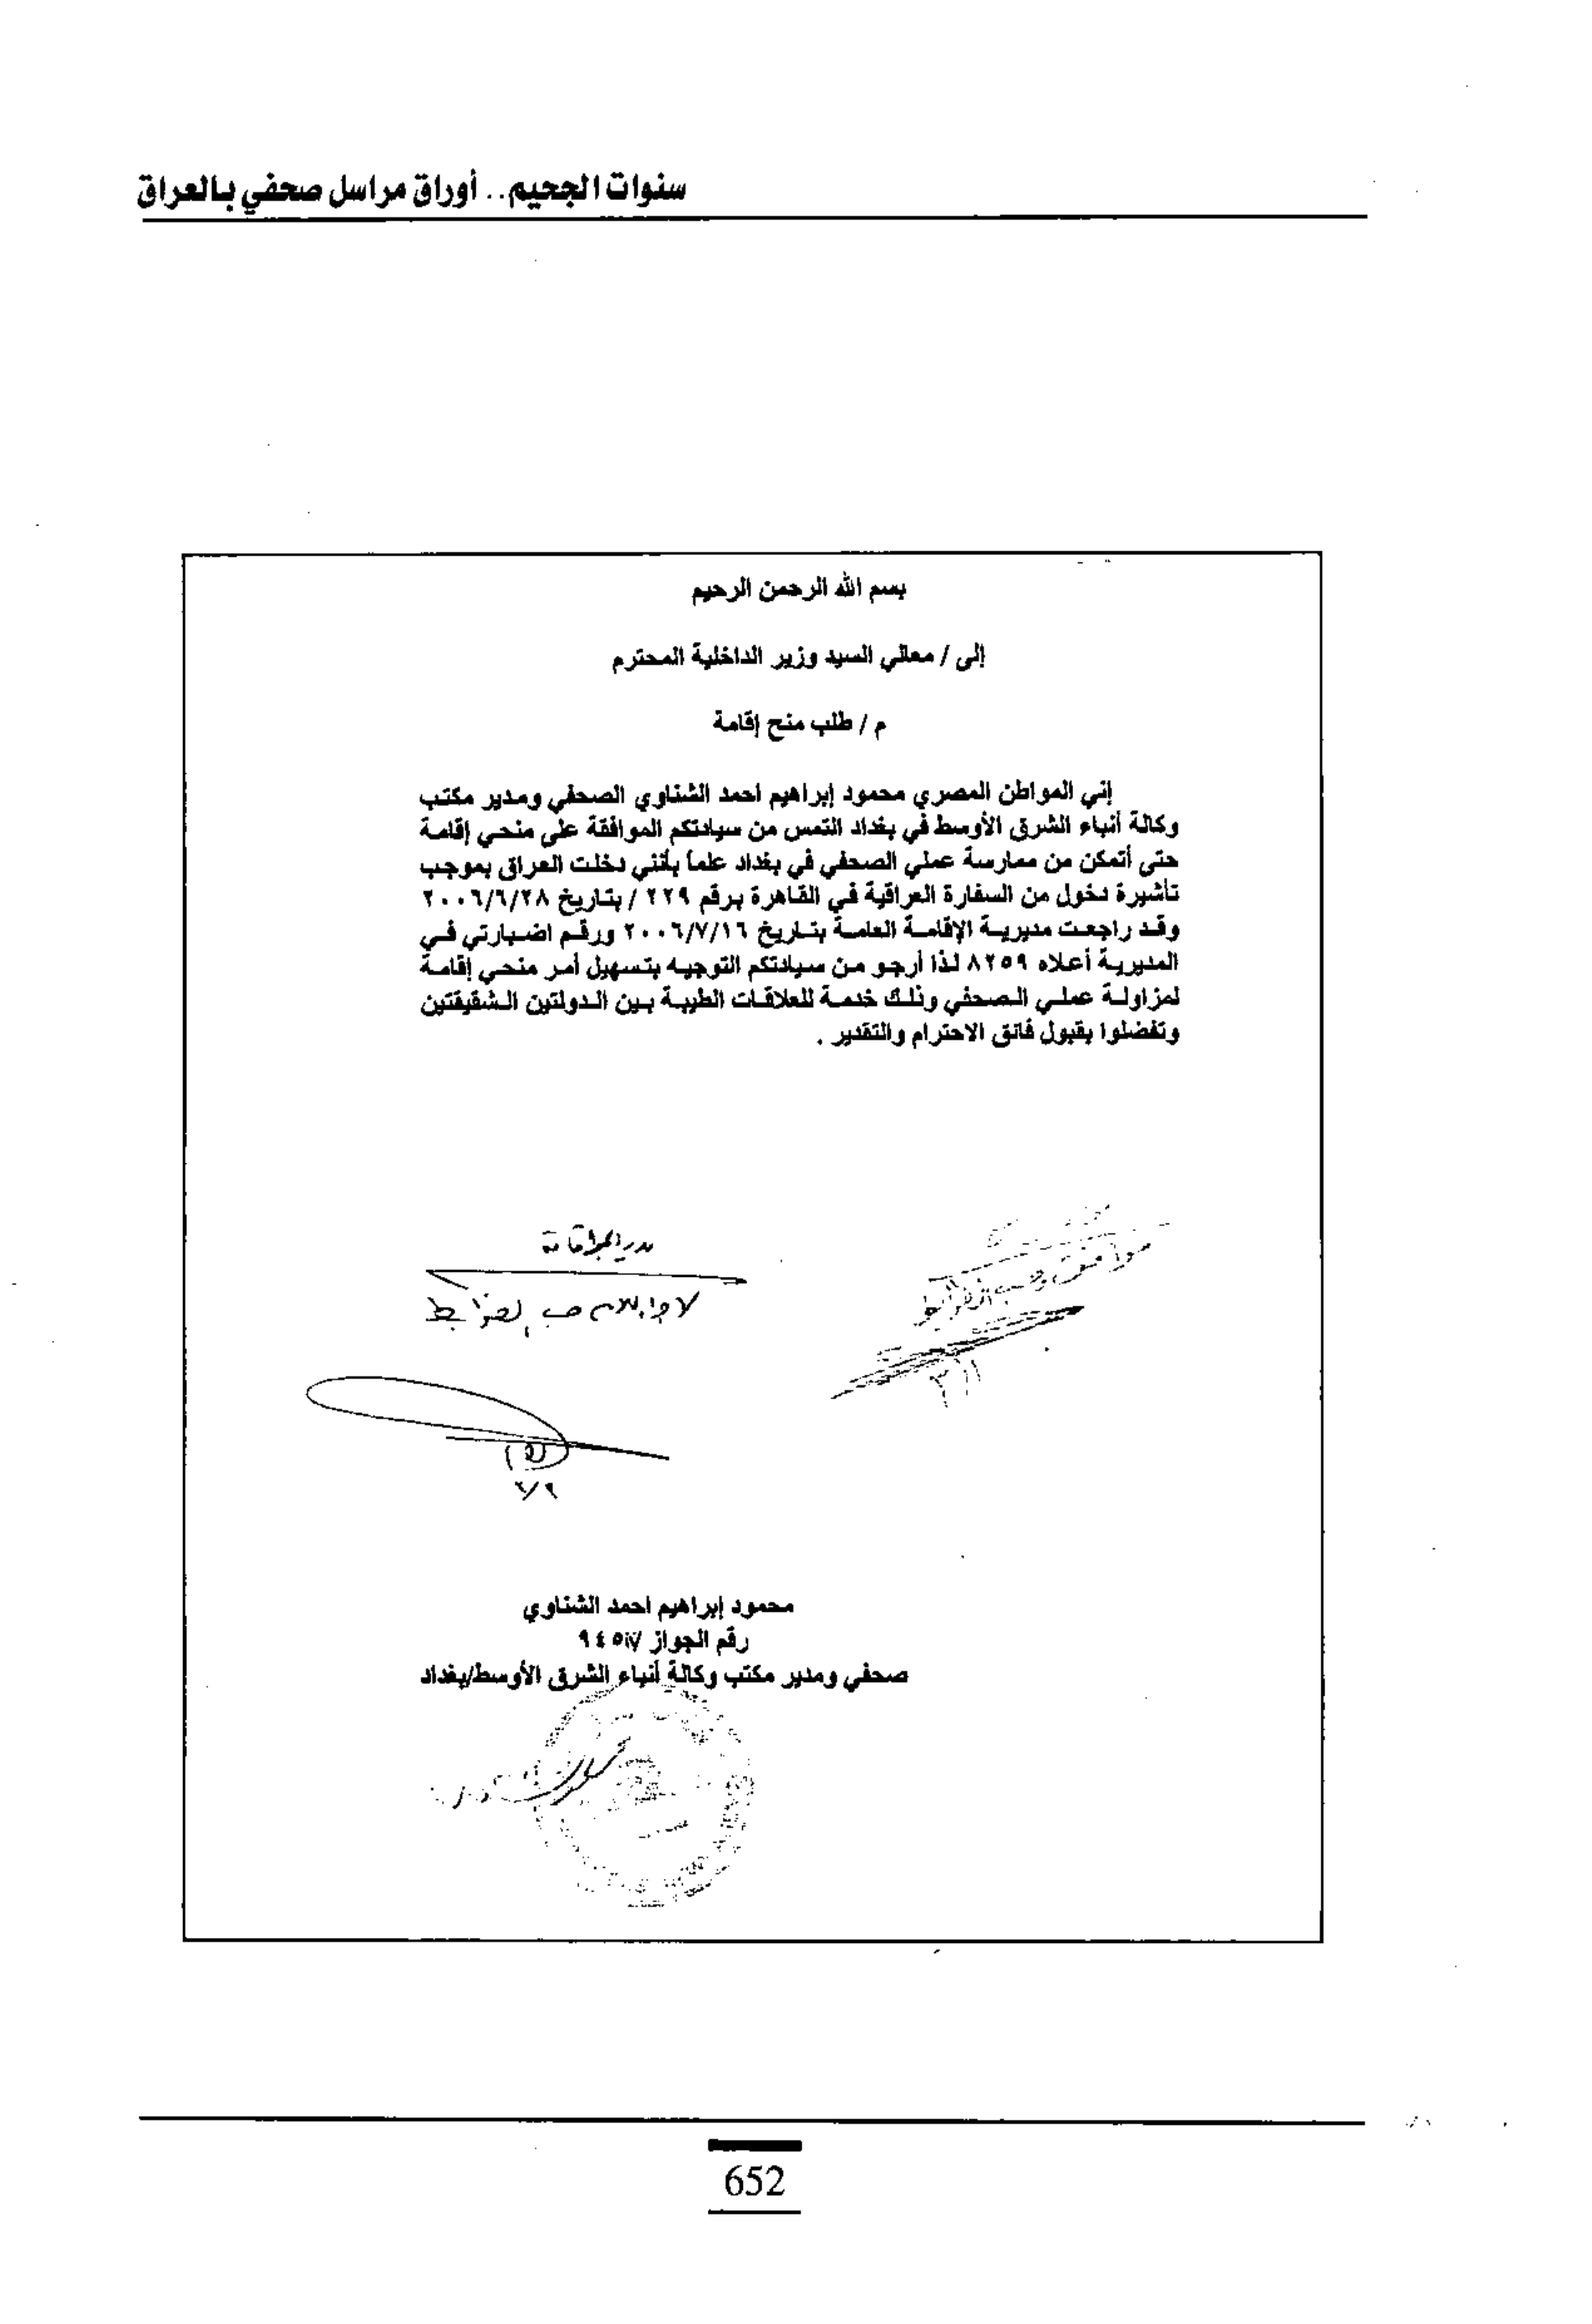 سنوات الجحيم.. أوراق مراسل صحفي بالعراق
بسم الله الرحمن الرحيم
إلى / معالي السيد وزير الداخلية المحترم
م / طلب منح إقامة
إني المواطن المصري محمود إبراهيم احمد الشناوي الصحفي ومدير مكتب
وكالة أنباء الشرق الأوسط في بغداد التمس من سيادتكم الموافقة على منحي إقامة
حتى أتمكن من ممارسة عملي الصحفي في بغداد علماً بأنني دخلت العراق بموجب
تأشيرة دخول من السفارة العراقية في القاهرة برقم ٢٢٩ / بتاريخ ٢٠٠٦/٦/٢٨
وقد راجعت مديرية الإقامة العامة بتاريخ ٢٠٠٦/٧/١٦ ورقم اضبارتي في
المديرية أعلاه ٨٢٥٩ لذا أرجو من سيادتكم التوجيه بتسهيل أمر منحي إقامة
لمزاولة عملي الصحفي وذلك خدمة للعلاقات الطيبة بين الدولتين الشقيقتين
وتفضلوا بقبول فائق الاحترام والتقدير .
محمود إبراهيم احمد الشناوي
رقم الجواز
صحفي ومدير مكتب وكالة أنباء الشرق الأوسط/بغداد
652